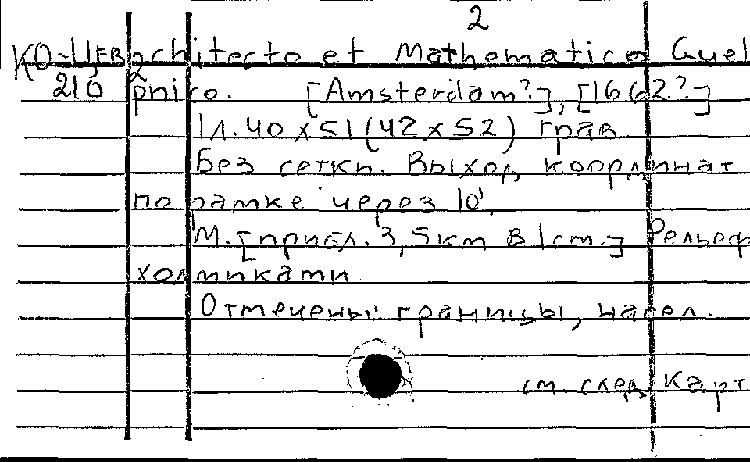 2
Ко-Цfв chitecto et Mathematico Guel
210 рпico. [Amsterdam?], [1662?]
1 л. 40 х 51 (42 х 52) грав.
Без сетки. Выход координат
по рамке через 10'.
М. [прибл. 3,5 км в 1 см.] Рельеф
холмиками
Отмечены: границы, насел.
см. след. карт